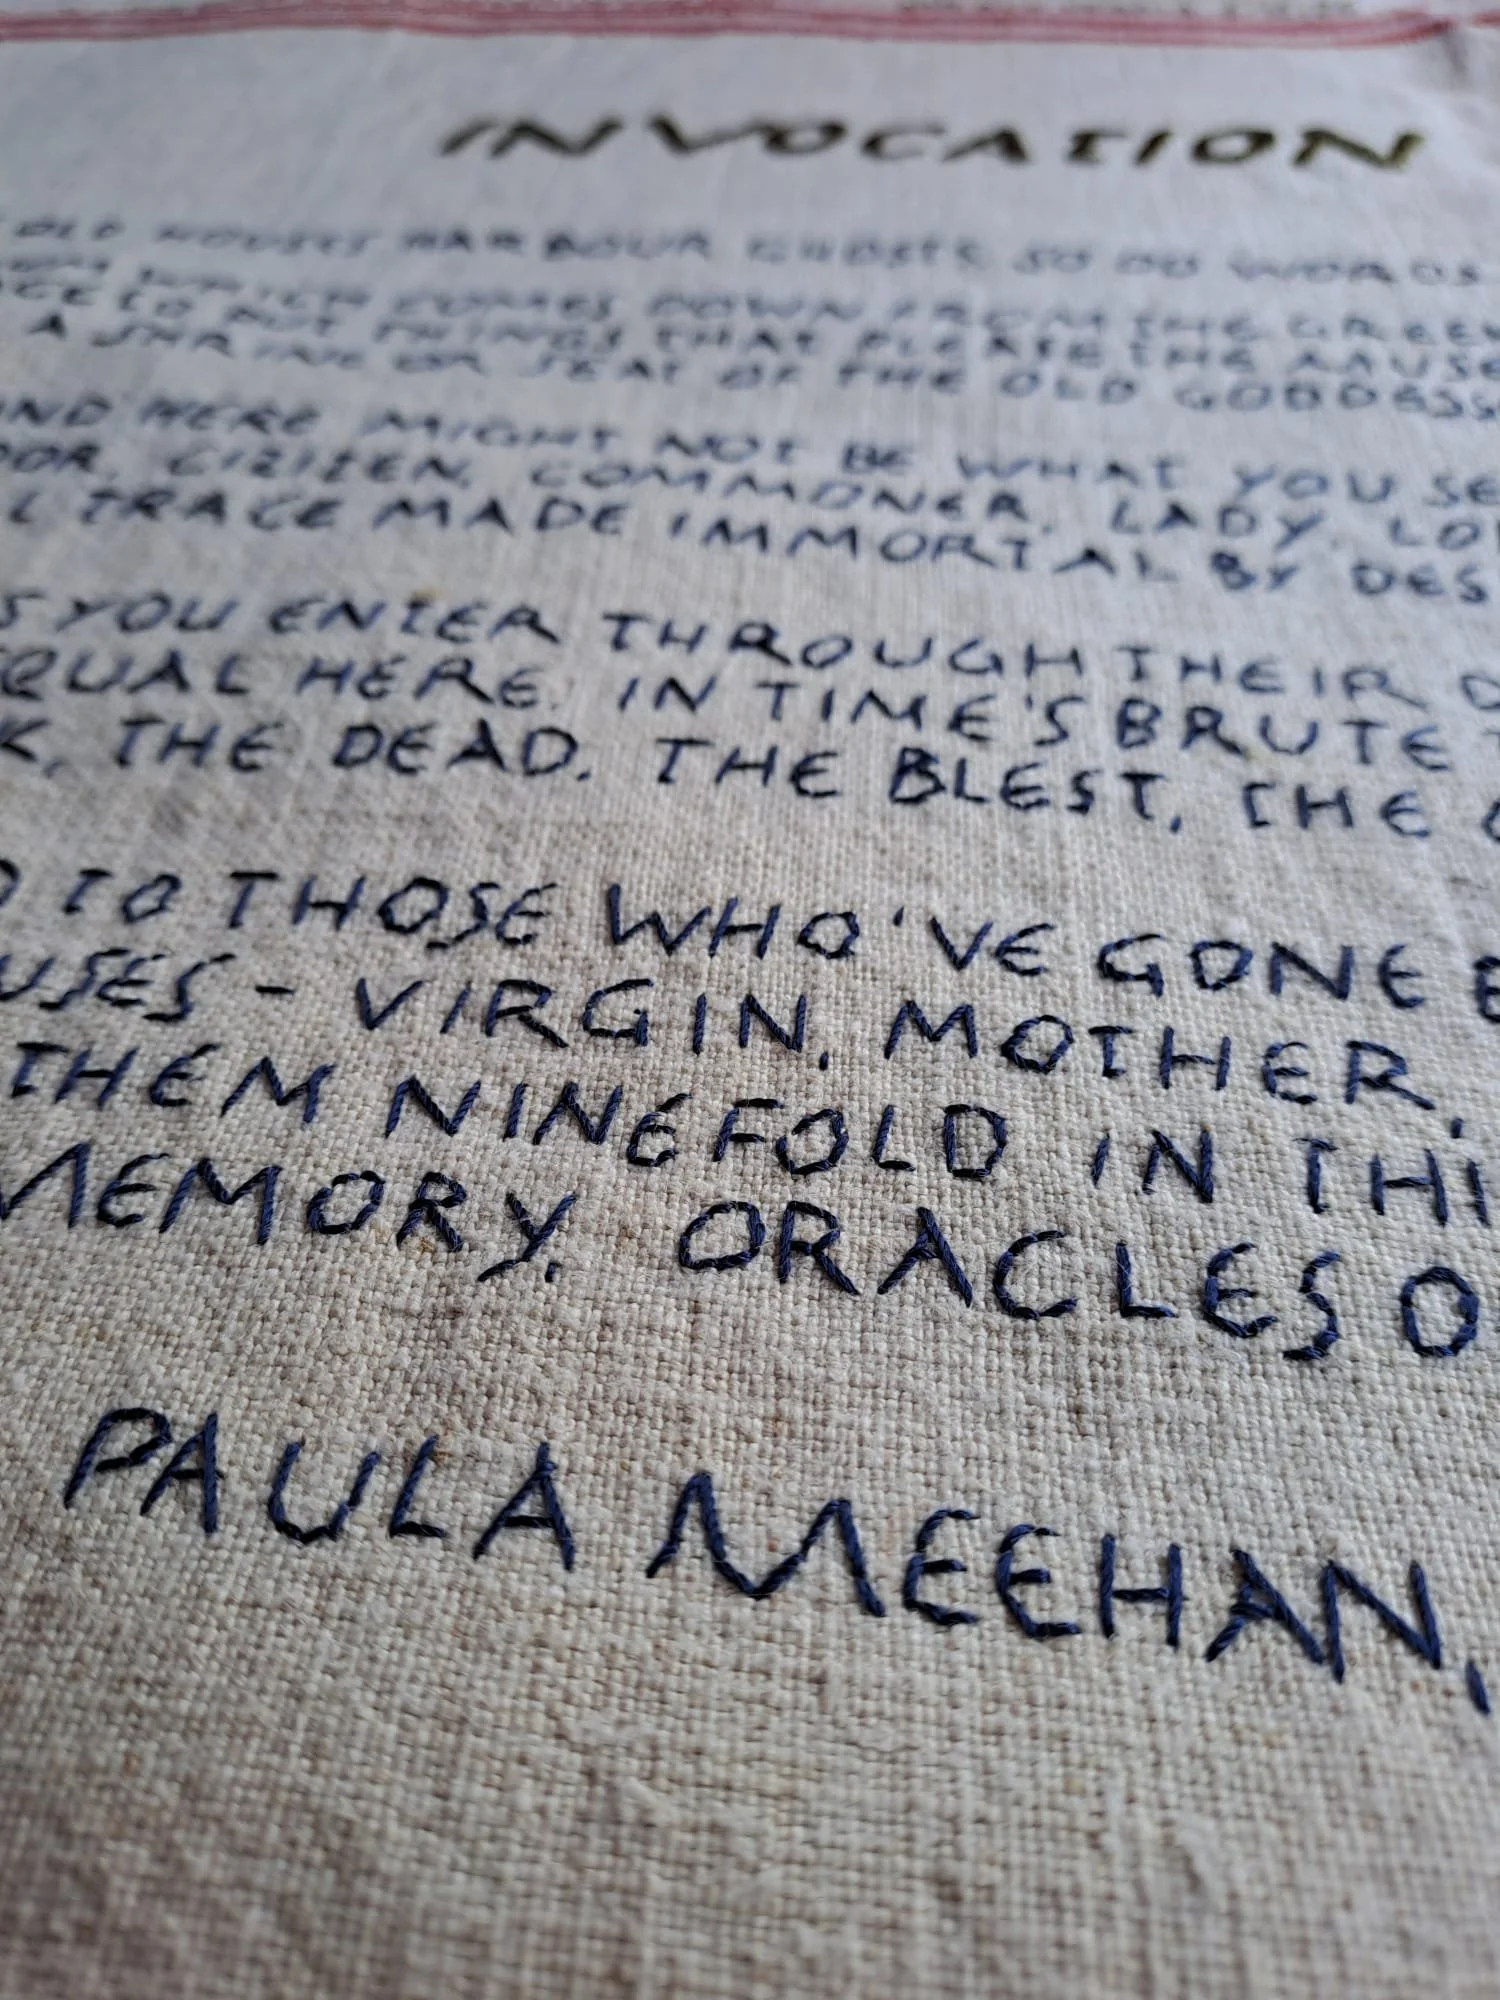 INVOCATION
OLD HOUSES HARBOUR GHOSTS SO DO WORDS
WHICH COMES DOWN FROM THE GREEK
TO PUT THINGS THAT PLEASE THE MUSE
A SHRINE OR SEAT OF THE OLD GODDESS
AND HERE MIGHT NOT BE WHAT YOU SE
OOR, CITIZEN, COMMONER, LADY, LO
L TRACE MADE IMMORTAL BY DES
S YOU ENTER THROUGH THEIR D
EQUAL HERE. IN TIME'S BRUTE
K, THE DEAD. THE BLEST, THE
D TO THOSE WHO'VE GONE B
USES - VIRGIN, MOTHER,
THEM NINEFOLD IN THI
MEMORY. ORACLES O
PAULA MEEHAN,